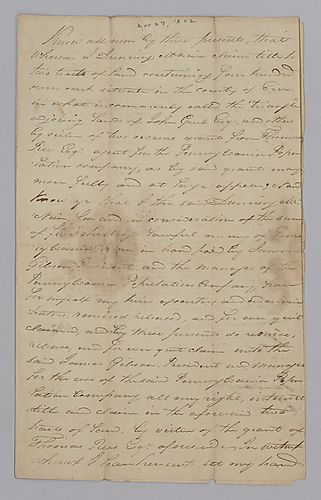 Oct 27, 1802
Know all men by these presents, that
Whereas I Dunning McNair claim title to
two tracts of land containing four hundred
acres each situate in the county of Erie
in what is commonly called the triangle
adjoining lands of John Esqr. and others
by virtue of two several grants from Thomas
Rees Esqr. agent for the Pennsylvania Popu-
lation company, as by said grants may
more fully and at large appear; And
know ye that I the said Dunning Mc
Nair, for and in consideration of the sum
of shillings lawful money of Penn-
sylvania to me in hand paid by James
Gibson, President, and the managers of the
Pennsylvania Population Company, have
for myself my heirs executors and adminis-
trators, remised released, and for ever quit
claimed, and by these presents do remise,
release, and for ever quit claim unto the
said James Gibson, President and managers
for the use of the said Pennsylvania Popu-
lation Company all my right, interest
title and claim in the aforesaid two
tracts of land, by virtue of the grant of
Thomas Rees Esqr. aforesaid. In witness
whereof I have hereunto set my hand